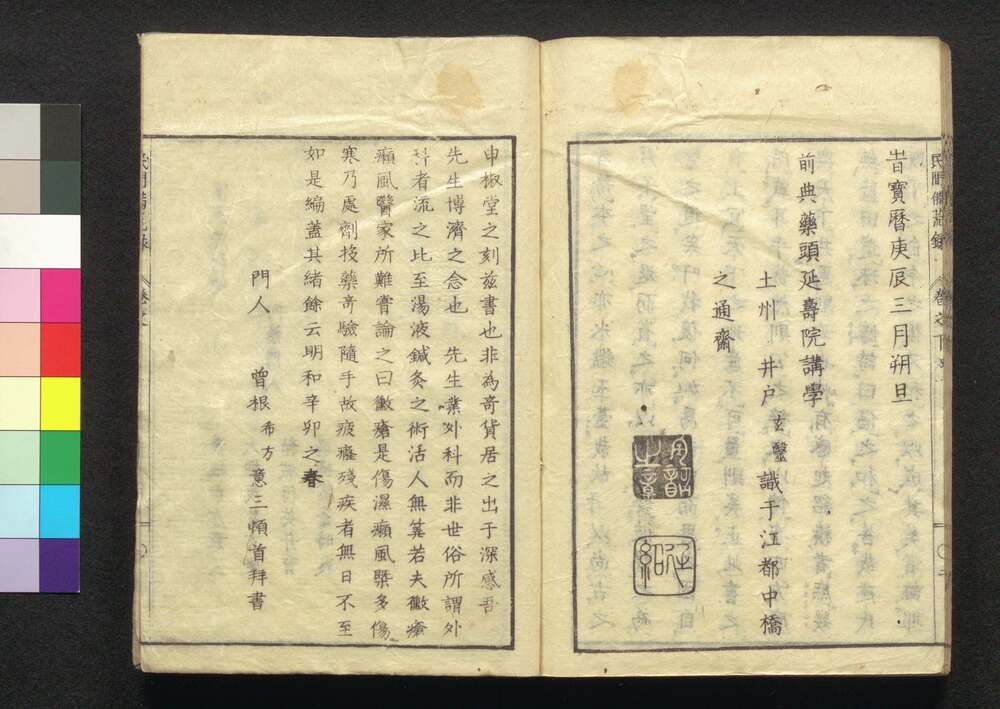 民間備荒録 卷之下
旹寶曆庚辰三月朔旦
前典藥頭延壽院講學
土州 井戶玄毉識于江都中橋
之通齋
申椒堂之刻茲書也非為奇貨居之出于深感吾
先生博濟之念也 先生業外科而非世俗所謂外
科者流之比至湯液鍼灸之術活人無筭若夫黴瘡
癩風醫家所難嘗論之曰黴瘡是傷濕癩風槩多傷
寒乃處劑投藥奇驗隨手故疲癃殘疾者無日不至
如是編蓋其緒餘云明和辛卯之春
門人 曾根希方意三頓首拜書